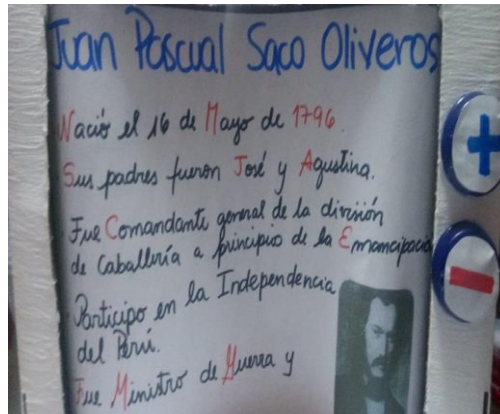 Juan Pascual Saco Oliveros
Nació el 16 de Mayo de 1796.
Sus padres fueron José y Agustina.
Fue Comandante general de la división
de Caballería a principio de la Emancipación
Participo en la Independencia
del Perú.
Fue Ministro de Guerra y